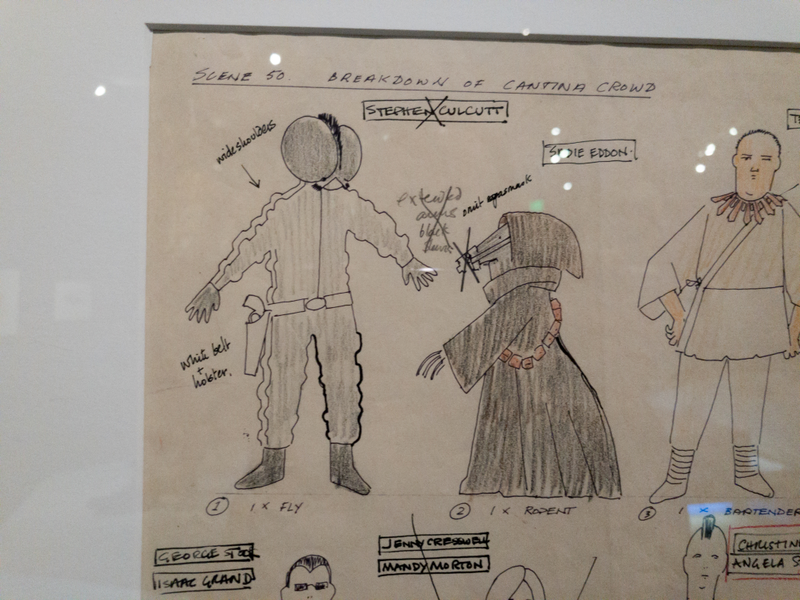 SCENE 50. BREAKDOWN OF CANTINA CROWD
STEPHEN CULCUTT
SADIE EDDON.
wide shoulders
extended
arms
black
omit
white belt
+
holster.
① 1 X FLY
② 1 X RODENT
③ 1 X BARTENDER
GEORGE STOCK
ISAAC GRAND
JENNY CRESSWELL
MANDY MORTON
CHRISTIN
ANGELA S